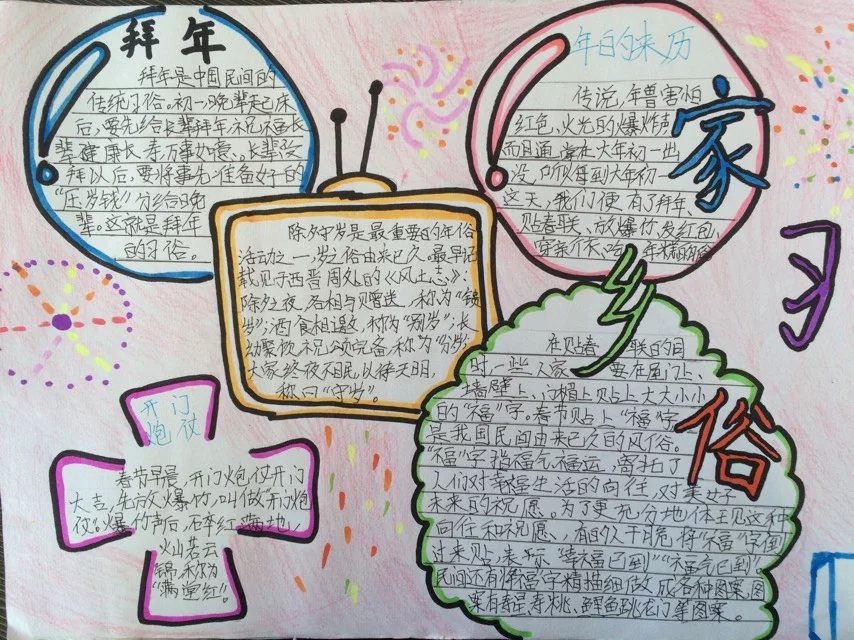 拜年
拜年是中国民间的
传统习俗。初一晚辈起床
后,要先给长辈拜年,祝福长
辈健康长寿,万事如意。长辈受
拜以后,要将事先准备好的
“压岁钱”分给晚
辈。这就是拜年
的习俗。
年的来历
传说,年兽害怕
红色、火光的爆炸声,
而且通常在大年初一出
没,所以每到大年初一
这天,我们便有了拜年、
贴春联、放爆竹、发红包、
家乡习俗
除夕守岁是最重要的年俗
活动之一,岁之俗由来已久。最早记
载见于西晋周处的《风土志》:
除夕之夜,各相与赠送,称为“馈
岁”;酒食相邀,称为“别岁”;长
幼聚饮,祝颂完备,称为“分岁”;
大家终夜不眠,以待天明,
称曰“守岁”。
开门
炮仗
春节早晨,开门炮仗开门
大吉,先放爆竹,叫做开门炮
仗。爆竹声后,碎红满地,
火灿若云
锦,称为
“满堂红”。
在贴春联的同
时,一些人家要在屋门上、
墙壁上、门楣上贴上大大小小
的“福”字。春节贴上“福”字,
是我国民间由来已久的风俗。
“福”字指福气、福运,寄托了
人们对幸福生活的向往,对美好
未来的祝愿。为了更充分地体现这种
向往和祝愿、有的人干脆将“福”字倒
过来贴,表示“幸福已到”“福气已到”。
民间还有将福字精描细做成各种图案,图
案有寿星、寿桃、鲤鱼跳龙门等图案。